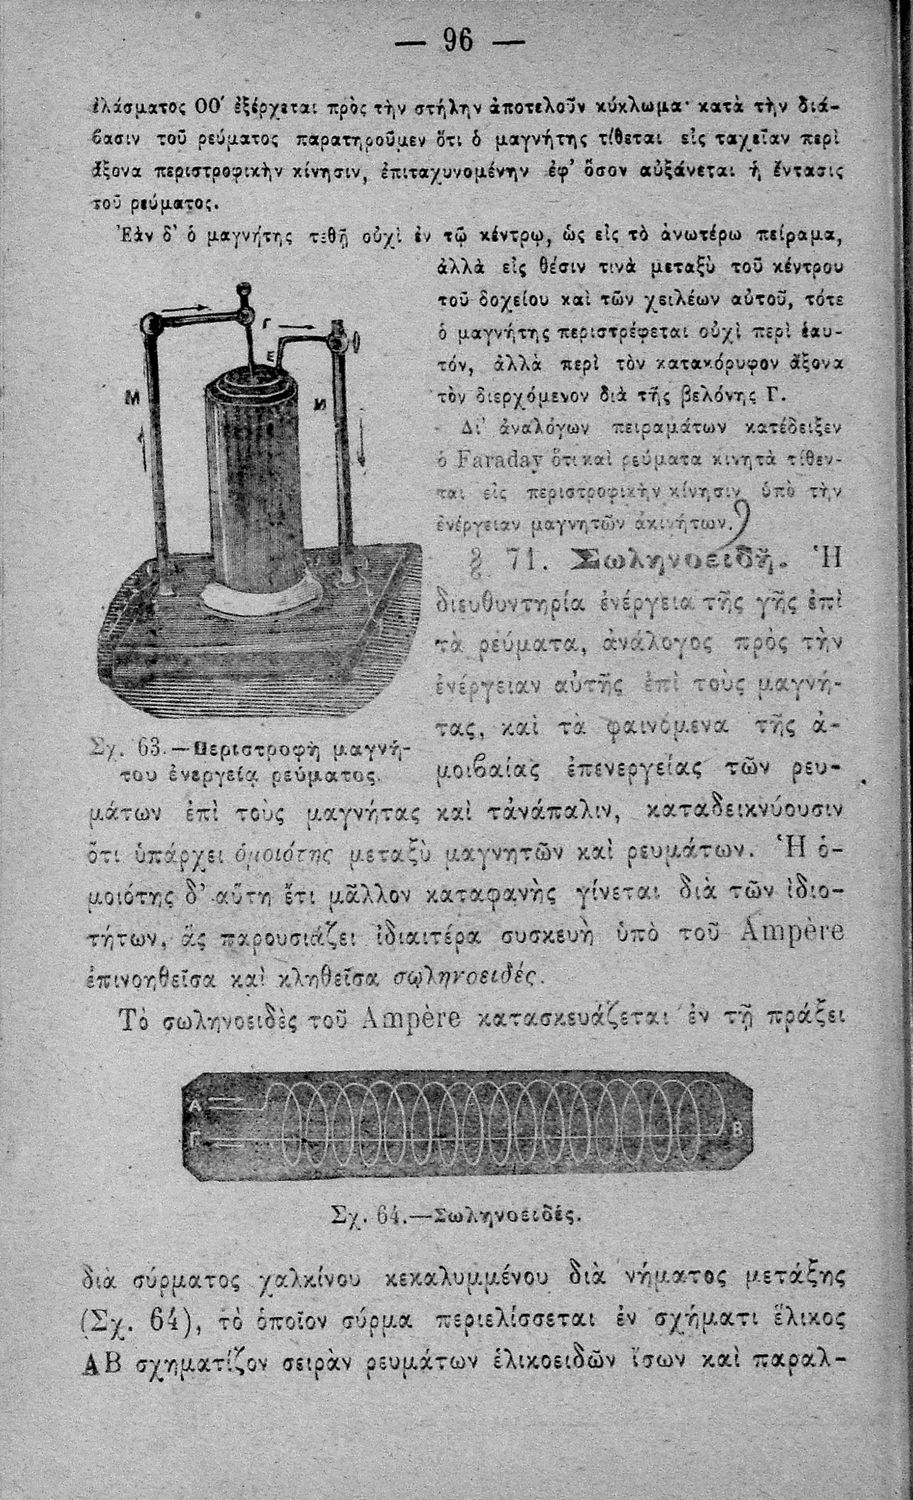 — 96 —
ἐλάσματος ΟΟ′ ἐξέρχεται πρὸς τὴν στήλην ἀποτελοῦν κύκλωμα· κατὰ τὴν διά-
βασιν τοῦ ρεύματος παρατηροῦμεν ὅτι ὁ μαγνήτης τίθεται εἰς ταχεῖαν περὶ
ἄξονα περιστροφικὴν κίνησιν, ἐπιταχυνομένην ἐφ’ ὅσον αὐξάνεται ἡ ἔντασις
τοῦ ρεύματος.
Ἐὰν δ’ ὁ μαγνήτης τεθῇ οὐχὶ ἐν τῷ κέντρῳ, ὡς εἰς τὸ ἀνωτέρω πείραμα,
ἀλλὰ εἰς θέσιν τινὰ μεταξὺ τοῦ κέντρου
τοῦ δοχείου καὶ τῶν χειλέων αὐτοῦ, τότε
ὁ μαγνήτης περιστρέφεται οὐχὶ περὶ ἑαυ-
τόν, ἀλλὰ περὶ τὸν κατακόρυφον ἄξονα
τὸν διερχόμενον διὰ τῆς βελόνης Γ.
Δι’ ἀναλόγων πειραμάτων κατέδειξεν
ὁ Faraday ὅτι καὶ ρεύματα κινητὰ τίθεν-
ται εἰς περιστροφικὴν κίνησιν ὑπὸ τὴν
ἐνέργειαν μαγνητῶν ἀκινήτων.
Γ
Ε
Μ
Ν
§ 71. Σωληνοειδῆ. Ἡ
διευθυντηρία ἐνέργεια τῆς γῆς ἐπὶ
τὰ ρεύματα, ἀνάλογος πρὸς τὴν
ἐνέργειαν αὐτῆς ἐπὶ τοὺς μαγνή-
τας, καὶ τὰ φαινόμενα τῆς ἀ-
μοιβαίας ἐπενεργείας τῶν ρευ-
Σχ. 63.—Περιστροφὴ μαγνή-
του ἐνεργείᾳ ρεύματος.
μάτων ἐπὶ τοὺς μαγνήτας καὶ τἀνάπαλιν, καταδεικνύουσιν
ὅτι ὑπάρχει ὁμοιότης μεταξὺ μαγνητῶν καὶ ρευμάτων. Ἡ ὁ-
μοιότης δ’ αὕτη ἔτι μᾶλλον καταφανὴς γίνεται διὰ τῶν ἰδιο-
τήτων, ἃς παρουσιάζει ἰδιαιτέρα συσκευὴ ὑπὸ τοῦ Ampère
ἐπινοηθεῖσα καὶ κληθεῖσα σωληνοειδές.
Τὸ σωληνοειδὲς τοῦ Ampère κατασκευάζεται ἐν τῇ πράξει
Α
Γ
Β
Σχ. 64.—Σωληνοειδές.
διὰ σύρματος χαλκίνου κεκαλυμμένου διὰ νήματος μετάξης
(Σχ. 64), τὸ ὁποῖον σύρμα περιελίσσεται ἐν σχήματι ἕλικος
ΑΒ σχηματίζον σειρὰν ρευμάτων ἑλικοειδῶν ἴσων καὶ παραλ-